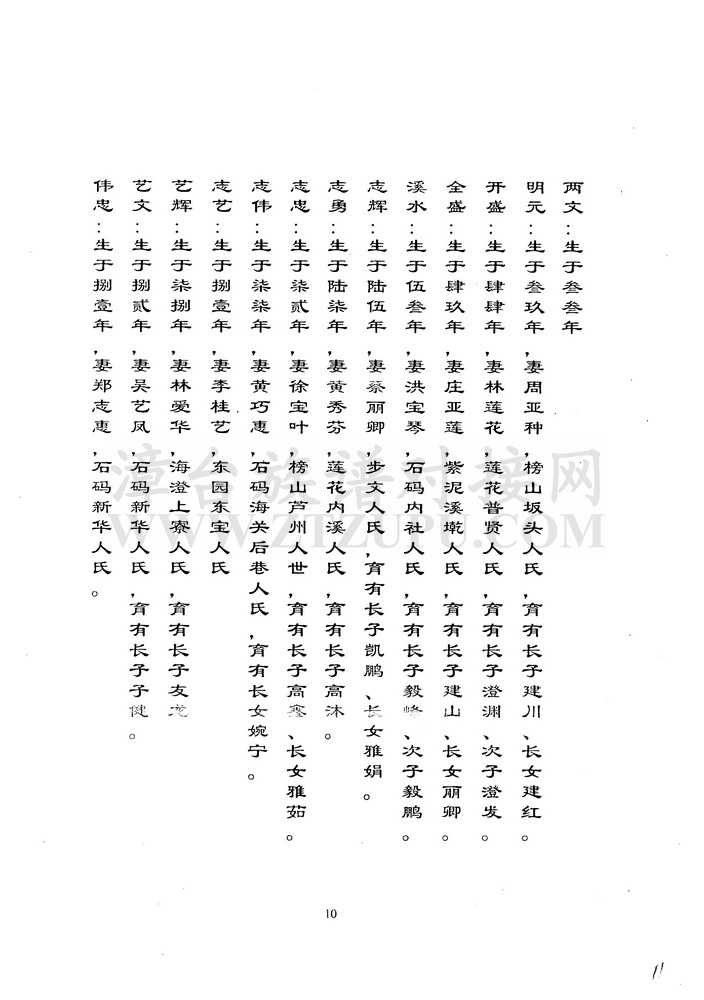 两文:生于叁叁年
明元:生于叁玖年,妻周亚种,榜山坂头人氏,育有长子建川、长女建红。
开盛:生于肆肆年,妻林莲花,莲花普贤人氏,育有长子澄渊、次子澄发。
全盛:生于肆玖年,妻庄亚莲,紫泥溪墘人氏,育有长子建山、长女丽卿。
溪水:生于伍叁年,妻洪宝琴,石码内社人氏,育有长子毅峰、次子毅鹏。
志辉:生于陆伍年,妻蔡丽卿,步文人氏,育有长子凯鹏、长女雅娟。
志勇:生于陆柒年,妻黄秀芬,莲花内溪人氏,育有长子高沐。
志忠:生于柒贰年,妻徐宝叶,榜山芦州人世,育有长子高鑫、长女雅茹。
志伟:生于柒柒年,妻黄巧惠,石码海关后巷人氏,育有长女婉宁。
志艺:生于捌壹年,妻李桂艺,东园东宝人氏
艺辉:生于柒捌年,妻林爱华,海澄上寮人氏,育有长子友龙
艺文:生于捌贰年,妻吴艺凤,石码新华人氏,育有长子子健。
伟忠:生于捌壹年,妻郑志惠,石码新华人氏。
漳台族谱对接网
WWW.ZTZUPU.COM
10
11